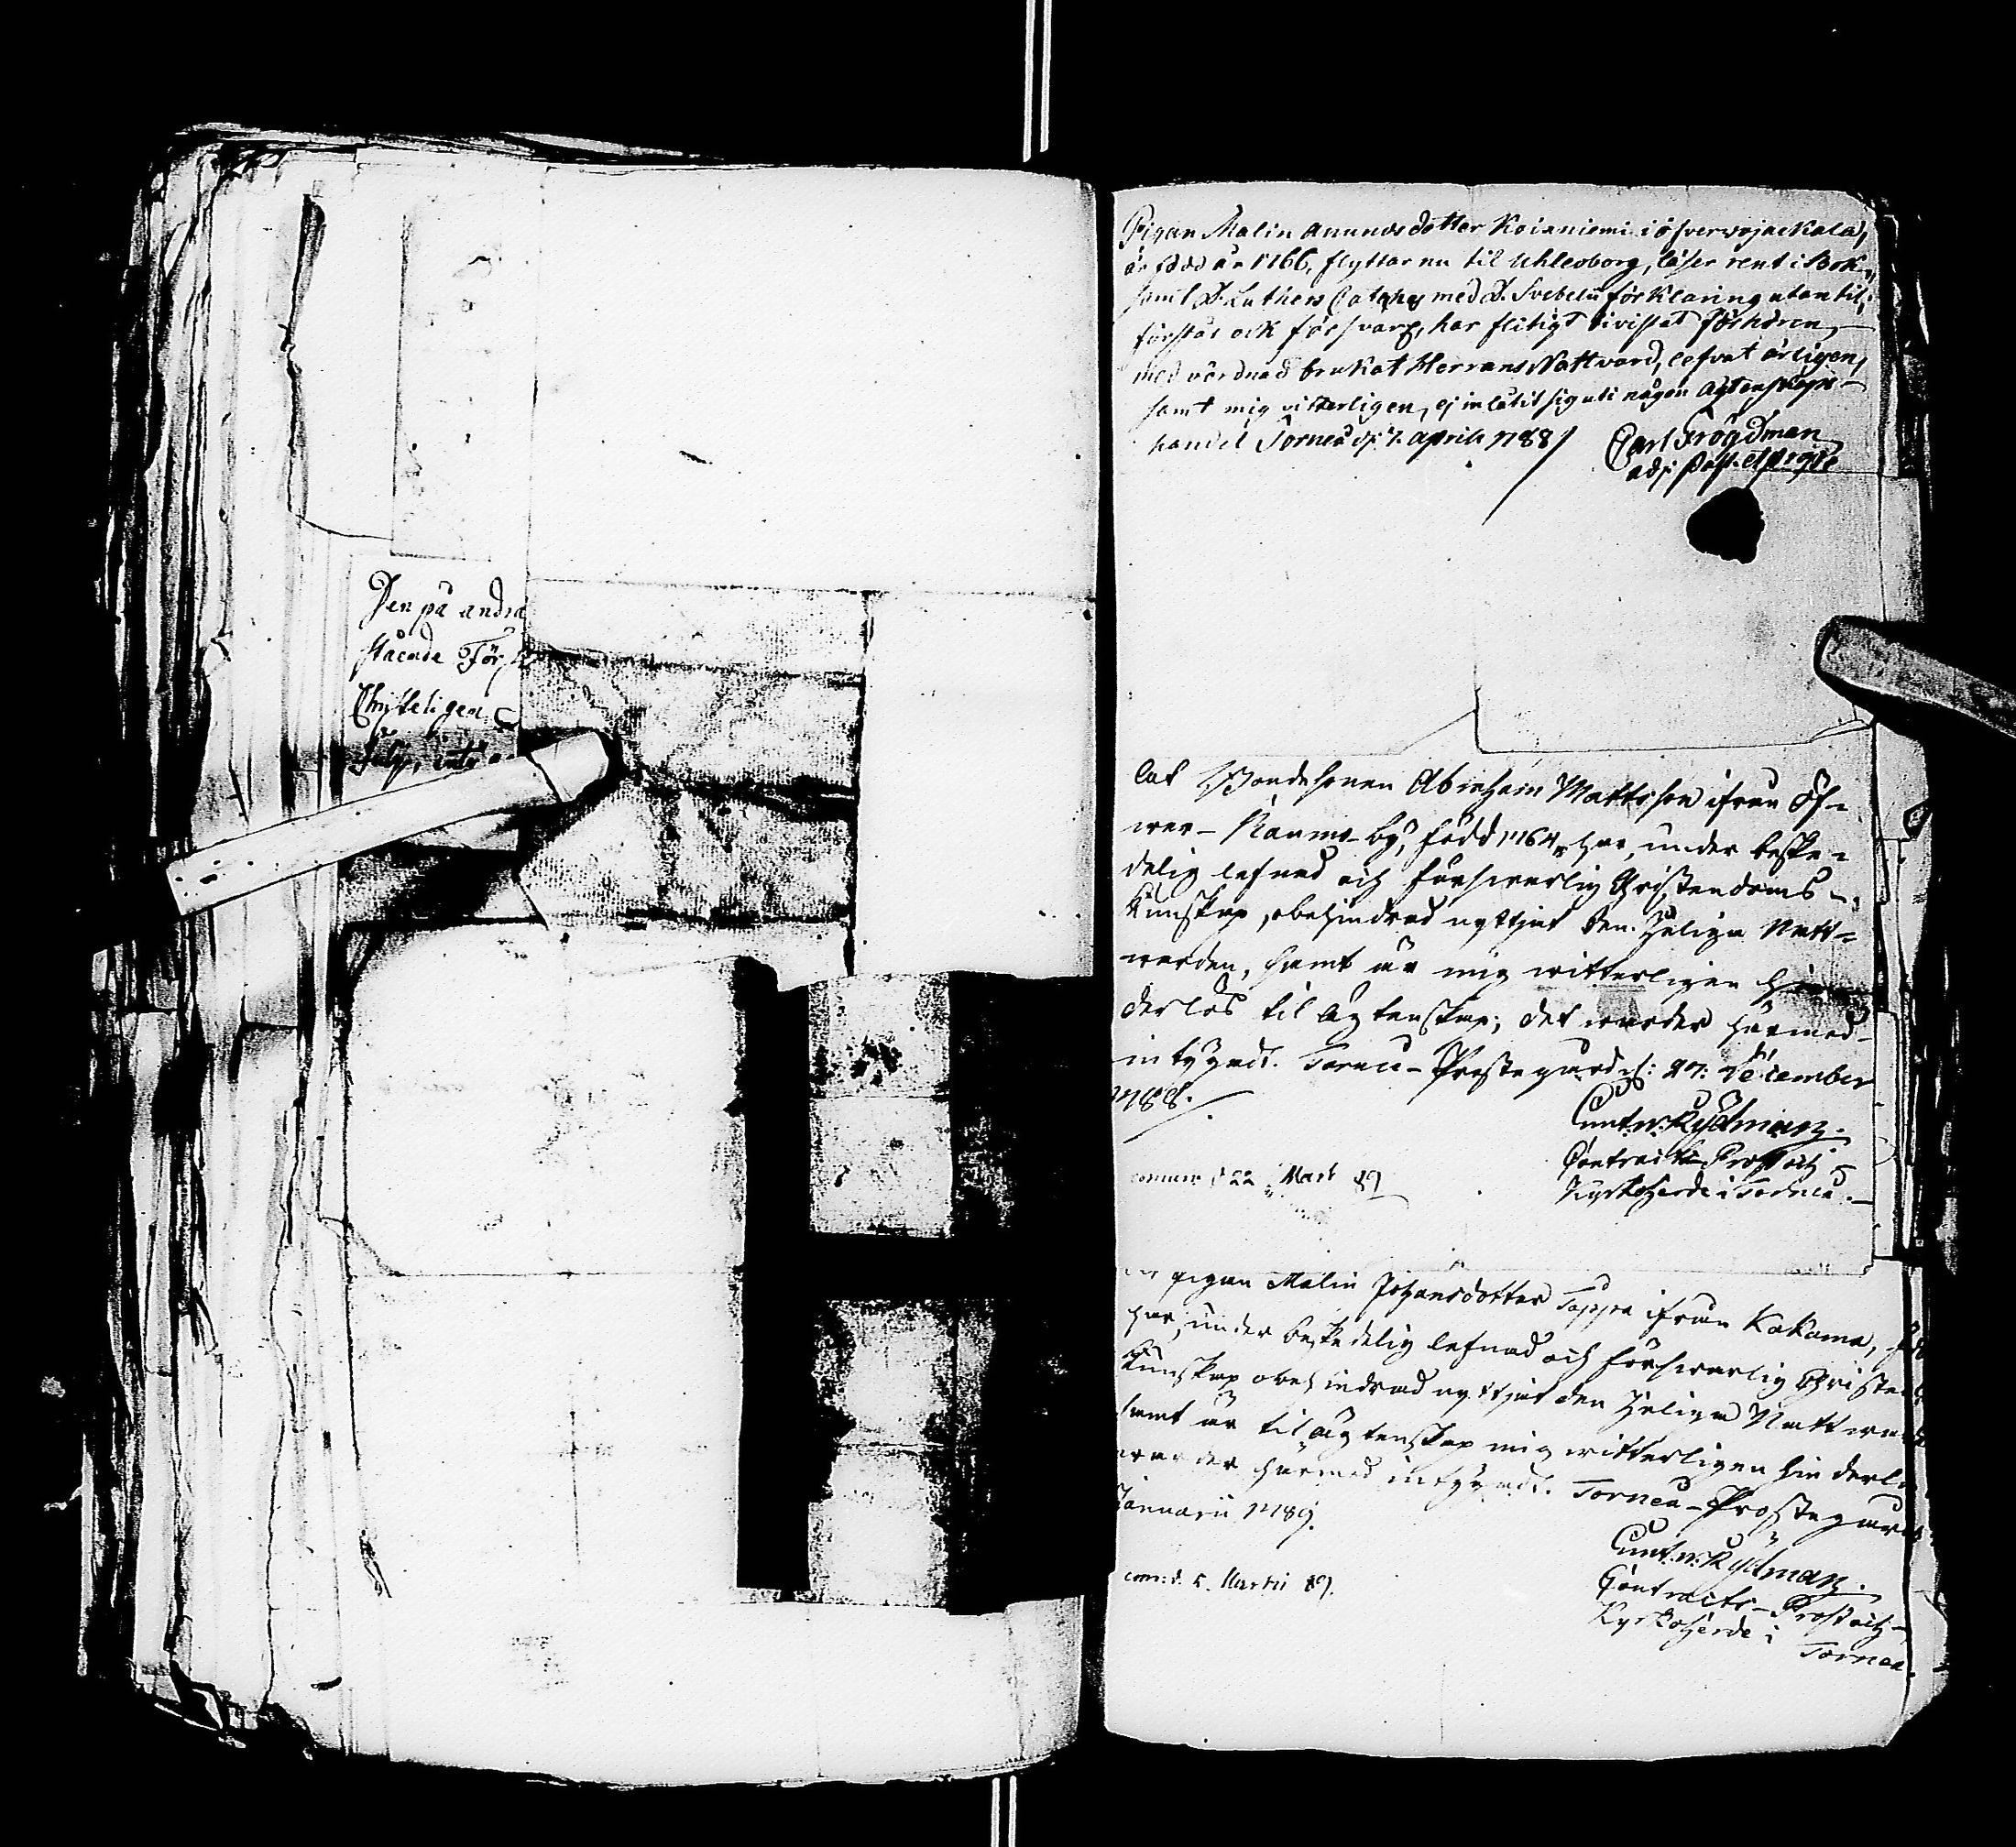 Den på andra
stående För
Christeligen
Pigan Malin Anundsdotter Koianiemi i öfvervojackala,
är född år 1766, flyttar nu til Uhleoborg, läser rent i Bok,
samt D. Luthers Cateches med D. Svebelii förklaring utantil,
förstår ock försvarl, har flitigt bivistat förhören,
med vördnad brukat Herrans Nattvard, lefvat ärligen,
samt mig vitterligen, ej inlåtit sig uti någon ägtenskaps-
handel Torneå d. 7. April 1788
Carl Frögdman
adj: Past.
Bondesonen Abraham Mattsson ifrån Öf-
wer-Raumo-by, född 1764, har, under beske-
delig lefnad och försvarlig Christendoms-
Kunskap, obehindrad nyttjat den Heliga Natt-
warden, samt är mig witterligen hin-
derlös til ägtenskap; det warder härmed
intygadt. Torneå-Prostegård d: 27: December
1788.
Cunt. w. Rydman.
Contracts-Prost och
Kyrkoherde i Torneå.
d 22 Mart 89
pigan Malin Johansdotter Tappa ifrån Kakama,
har, under beskedelig lefnad och försvarlig Christen
Kunskap obehindrad nyttjat den Heliga Nattwar
samt är til ägtenskap mig witterligen hinderlö
warder härmed intygadt. Torneå-Prostegård
Januarii 1789.
Cunt. w. Rydman.
Contracts-Prost och
Kyrkoherde i
Torneå.
com: d. 5. Martii 89.